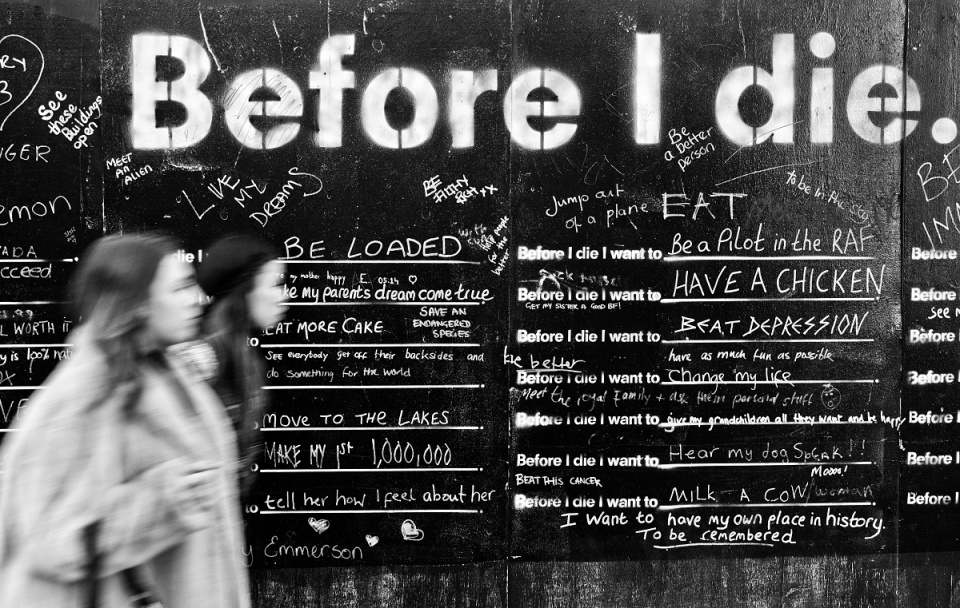 Before I die.
RY
3
See
these
Buildings
open
MEET
AN
ALIEN
LIVE
MY
DREAMS
BE
FILTHY
RICH xx
Jump out
of a plane
Be
a better
person
EAT
to be in the sky
NGER
emon
ADA
cceed
L WORTH IT
die I
BE LOADED
my mother happy E. 05.14
my parents dream come true
EAT MORE CAKE
SAVE AN
ENDANGERED
SPECIES
See everybody get off their backsides and
do something for the world
MOVE TO THE LAKES
MAKE MY 1st 1,000,000
tell her how I feel about her
Emmerson
Before I die I want to Be a Pilot in the RAF
Before I die I want to HAVE A CHICKEN
GET MY SISTER A GOOD BF!
Before I die I want to BEAT DEPRESSION
have as much fun as possible
be better
Before I die I want to change my life
Meet the royal family + ask them personal stuff
Before I die I want to give my grandchildren all they want and be happy
Before I die I want to Hear my dog Speak!!
BEAT THIS CANCER
Mooo!
Before I die I want to MILK A COW / woman
I want to have my own place in history.
To be remembered
BE
IMM
Before
Before I
see m
Before I
Before I
Before I
Before I
Before I